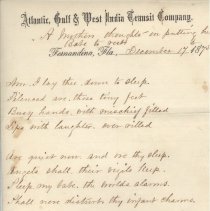 Atlantic, Gulf & West India Transit Company.
A Mothers thoughts on putting h
Babe to rest
Fernandina, Fla., December 17 187
Now I lay thee down to sleep.
Silenced are those tiny feet
Busy hands, with mischief filled
Lips with laughter, ever
Are quiet now and in thy sleep.
Angels shall their vigils keep.
Sleep my babe, the worlds alarms.
Shall never disturb thy infant charms.